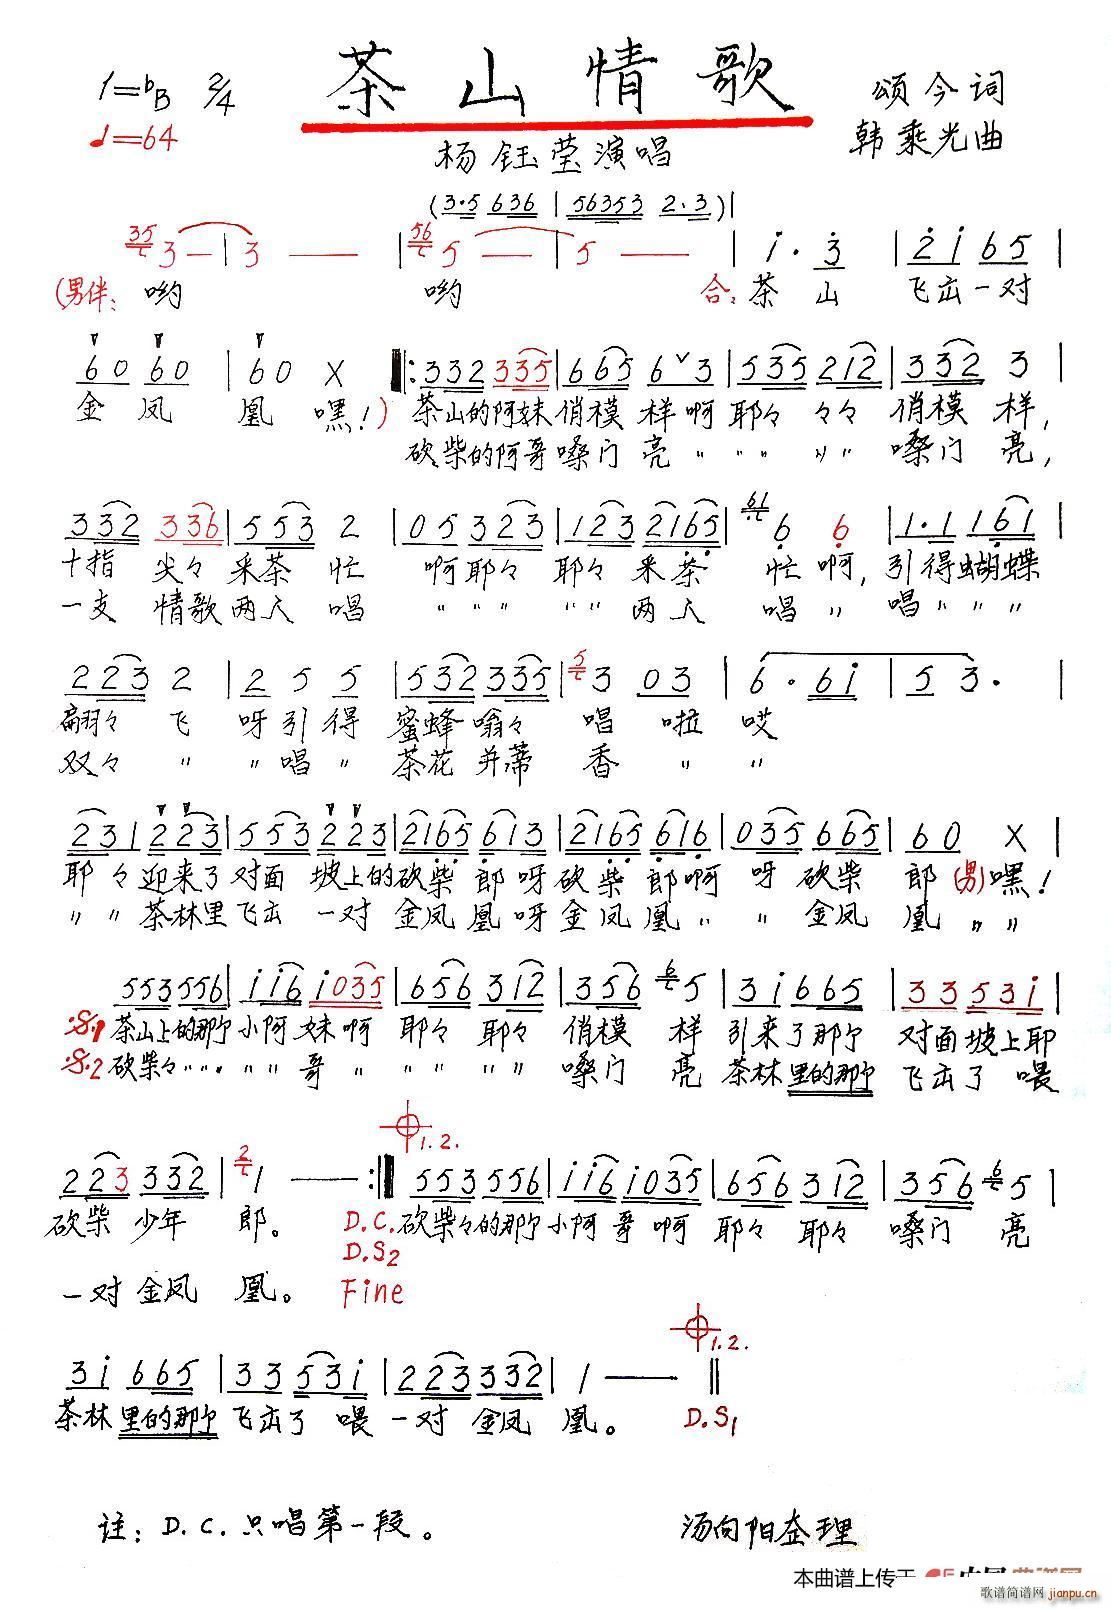 茶山情歌
1=♭B 2/4
♩=64
颂今词
韩乘光曲
杨钰莹演唱
(3·5 636 | 56353 2·3)|
35 3 — | 3 — — | 56 5 — — | 5 — — | i· 3 | 2 i 6 5 |
(男伴: 哟 哟 合: 茶 山 飞出一对
60 60 | 60 X ‖: 332 335 | 665 6ˇ3 | 535 212 | 332 3 |
金 凤 凰 嘿!) 茶山的阿妹俏模样啊耶々々々俏模样,
砍柴的阿哥嗓门亮 〃 〃 〃 〃〃 嗓门亮,
332 336 | 553 2 | 05 323 | 123 2165 | 61 6 6 | 1·1 161 |
十指尖々采茶忙 啊耶々耶々采茶忙啊,引得蝴蝶
一支情歌两人唱 〃 〃〃 〃〃 两人唱 〃 唱 〃 〃 〃
2 23 2 | 2 5 5 | 532 335 | 5 3 03 | 6· 6i | 5 3· |
翩々飞 呀引得蜜蜂嗡々唱啦哎
双々 〃 〃唱 〃 茶花并蒂香 〃 〃
23 1 223 | 553 223 | 2165 613 | 2165 616 | 035 665 | 60 X |
耶々迎来了对面坡上的砍柴郎呀砍柴郎啊呀砍柴郎(男)嘿!
〃 〃 茶林里飞出一对金凤凰呀金凤凰 〃 〃 金凤凰 〃 〃
553 556 | i i6 i035 | 656 312 | 356 6 5 | 3i 665 | 3353i |
𝄋1 茶山上的那个小阿妹啊耶々耶々俏模样引来了那个对面坡上耶
𝄋2 砍柴々〃〃〃 〃 〃 哥 〃 〃 〃 〃 〃 嗓门亮茶林里的那个飞出了喂
223 332 | 2 1 — :‖ 553 556 | i i6 i035 | 656 312 | 356 6 5 |
1.2.
砍柴少年郎。 D.C. 砍柴々的那个小阿哥啊耶々耶々嗓门亮
D.S2
一对金凤凰。 Fine
1.2.
3i 665 | 3353i | 223 332 | 1 — ‖
茶林里的那个飞出了喂一对金凤凰。 D.S1
注: D.C.只唱第一段。
汤向阳整理
本曲谱上传于
歌谱简谱网 jianpu.cn